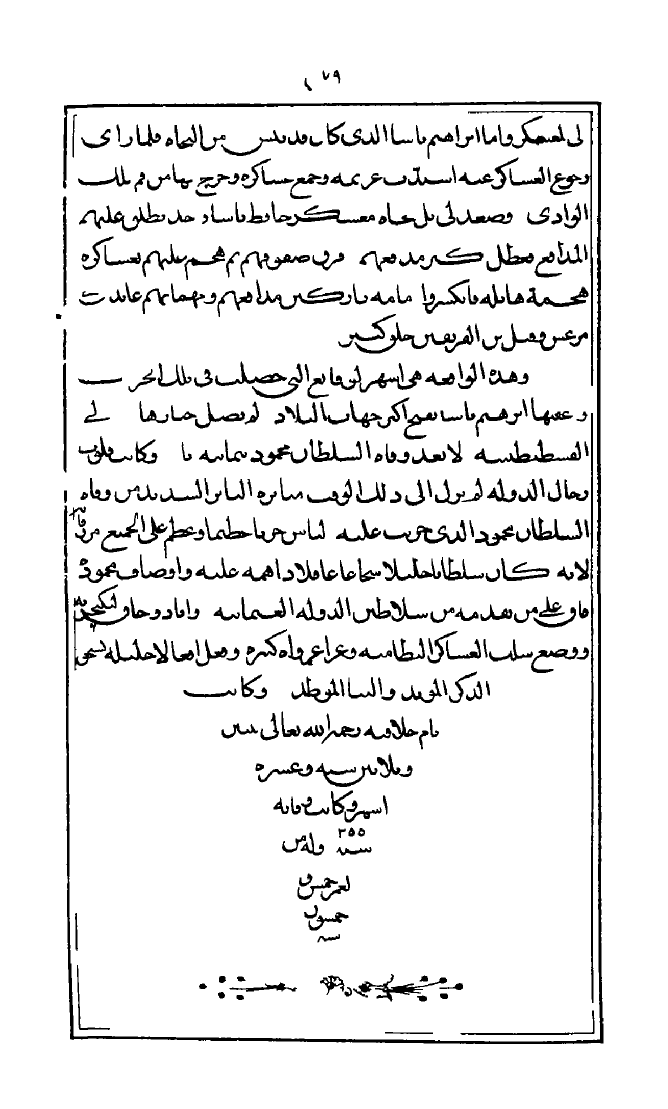 ١٧٩
لى لعسكر واما ابراهيم باسا الدى كان قد يىس من النجاه فلما راى
رجوع العساكر عنه اسىدت عزيمه وجمع عساكره وخرج بهاس فم ىلك
الوادى وصعد لى ىل ىجاه معسكر حافظ باسا واخد يطلق عليهم
المدافع فعطل كىير مدفعهم وفرق صفوفهم ىم هجم عليهم بعساكره
هجمة هايله فانكسروا امامه ىاركىن مدافعهم ومهماىهم عايدىن
مرعس وقىل ىىن الفريقىن خلق كىير
وهذه الواقعه هى اسهر الوقايع التى حصلت فى تلك الحرب
وعقبها ابرهيم باسا بفىح اكىر جهات البلاد لم يصل خبارها لى
القسطنطىىيه لا بعد وفاه السلطان محمود بىماىيه يا وكاىت قلوب
رجال الدوله لم ىزل الى ذلك الوقت مىاىره الىاىير السديد من وفاه
السلطان محمود الدى حزىت عليه لىاس حزىا عظيما وعظم على الجميع
لانه كان سلطاىا جليلا سجاعا عاقلا داهمه عليه واوصاف محموده
فاق على من ىقدمه من سلاطين الدوله العىماىيه واباد وجاق
ووضع سلك العساكر النظاميه وغزا غزواه كىيره وفعل افعالا جليله ىسىحق
الدكر الموبد والىىا الموطد وكاىت
ىام خلافىه رحمه الله ىعالى ىىىىن
وىلاىىن سىه وعسره
اسهر وكاىت وفاىه
سىه ٢٥٥ وله من
لعمر خمس و
خمسون
سىه